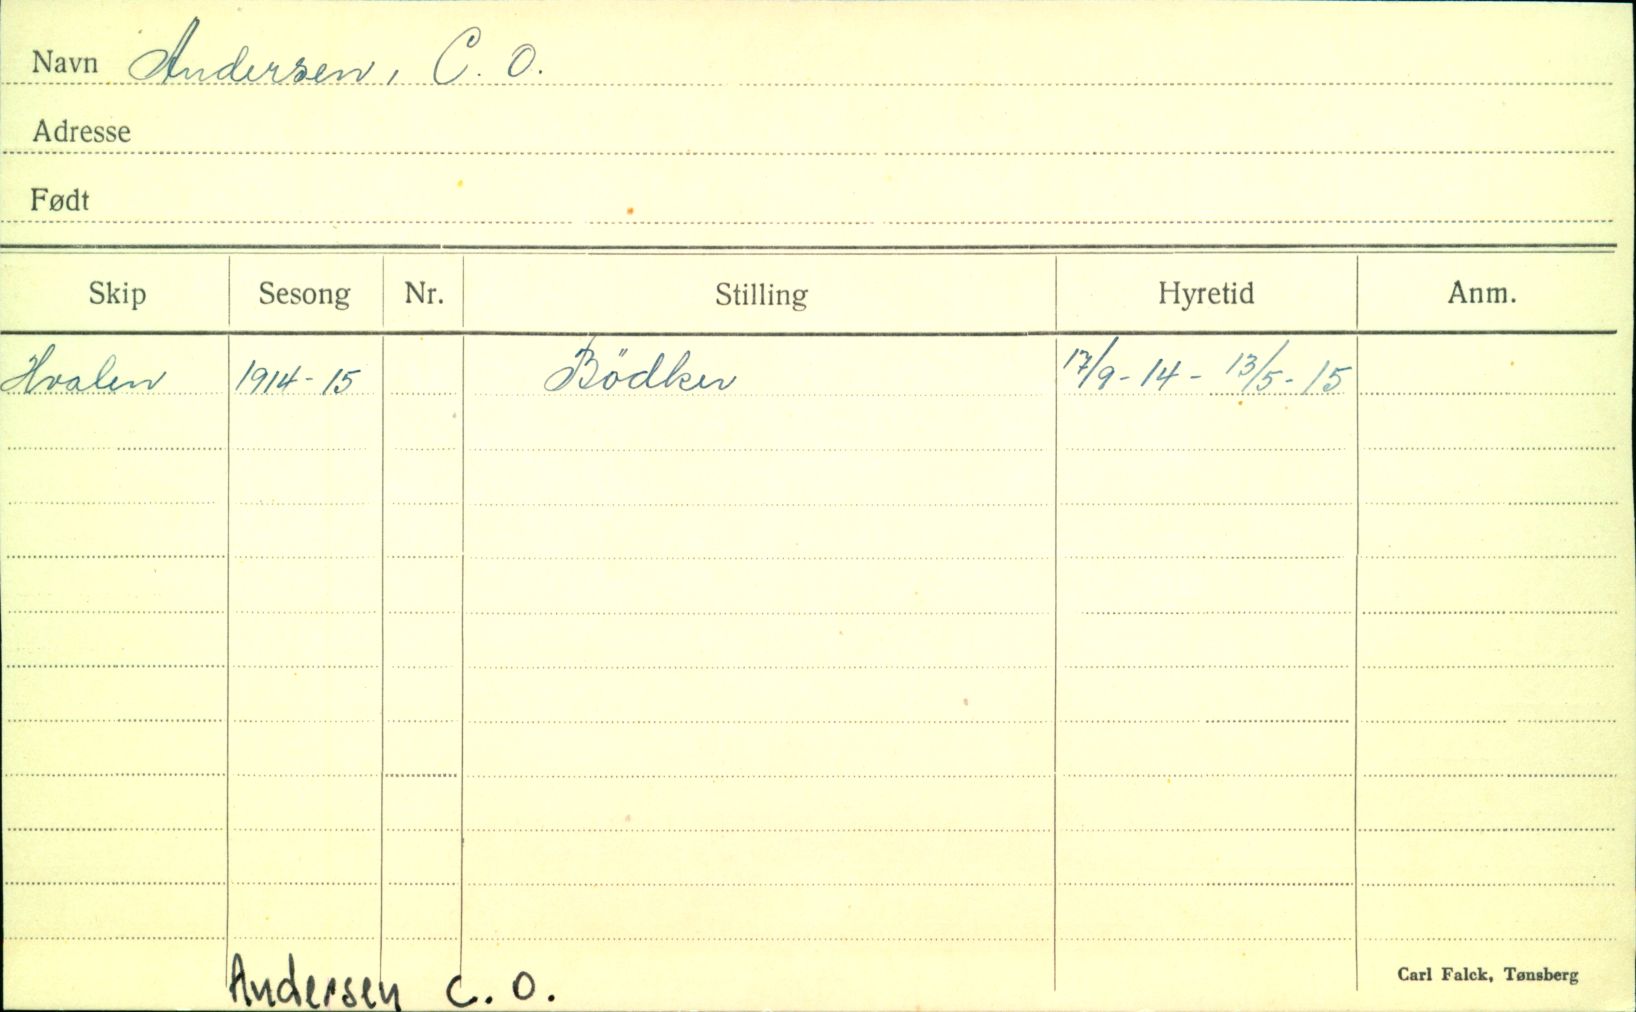 Navn Andersen, C. O.
Adresse
Født
Skip Sesong Nr. Stilling Hyretid Anm.
Hvalen 1914-15 Bödker 17/9-14 - 13/5-15
Andersen C. O.
Carl Falck, Tønsberg